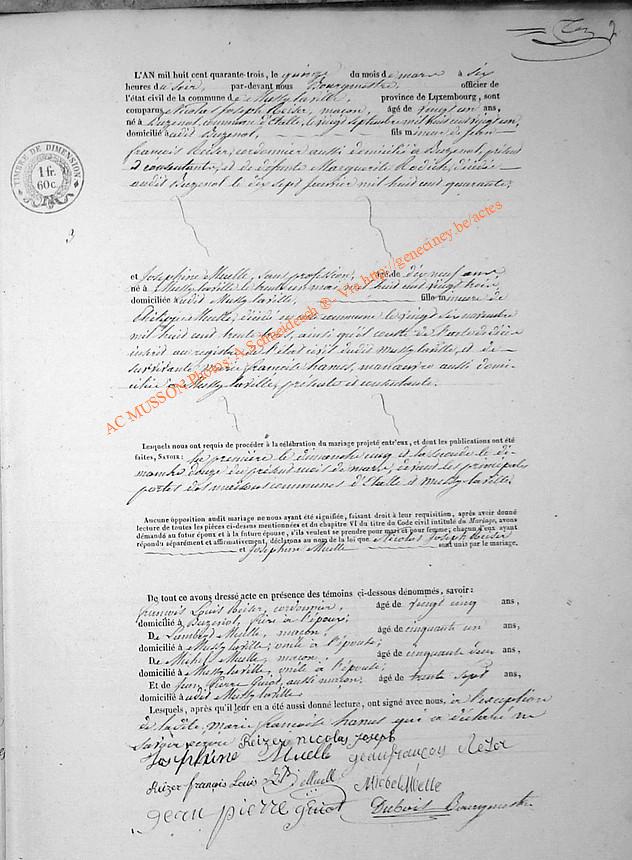 L'AN mil huit cent quarante-trois, le quinze du mois de mars à six
heures du soir, par-devant nous Bourgmestre officier de
l'état civil de la commune de Mussy la ville, province de Luxembourg, sont
comparus Nicolas Joseph Reiser, maçon, âgé de vingt un ans,
né à Buzenol, commune d'Etalle, le vingt septembre mil huit cent vingt un,
domicilié audit Buzenol, fils mineur de Jean
françois Reiser, cordonnier aussi domicilié à Buzenol, présent
et consentant, et de défunte Marguerite Rodich, décédée
audit Buzenol le dix sept janvier mil huit cent quarante,
TIMBRE DE DIMENSION
1 fr.
60c.
3
et Josephine Muelle, sans profession, âgé de dix neuf ans
né à Mussy la ville le trente un mai mil huit cent vingt trois
domiciliée audit Mussy la ville, fille mineure de
Philippe Muelle, décédé en cette commune le vingt dix novembre
mil huit cent trente trois, ainsi qu'il conste de l'acte de décès
inscrit au registre de l'état civil dudit Mussy la ville, et de
survivante Marie françoise hanus, manœuvre aussi domi-
ciliée à Mussy la ville, présente et consentante.
Lesquels nous ont requis de procéder à la célébration du mariage projeté entr'eux, et dont les publications ont été
faites, SAVOIR : la première le dimanche cinq et la seconde le di-
manche douze du présent mois de mars, devant les principales
portes des maisons communes d'Etalle et Mussy la ville
Aucune opposition audit mariage ne nous ayant été signifiée, faisant droit à leur requisition, après avoir donné
lecture de toutes les pièces ci-dessus mentionnées et du chapitre VI du titre du Code civil intitulé du Mariage, avons
demandé au futur époux et à la future épouse, s'ils veulent se prendre pour mari et pour femme; chacun d'eux ayant
répondu séparément et affirmativement, déclarons au nom de la loi que Nicolas Joseph Reiser
et Josephine Muelle sont unis par le mariage.
De tout ce avons dressé acte en présence des témoins ci-dessous dénommés, savoir:
françois Louis Reiser, cordonnier, âgé de vingt cinq ans,
domicilié à Buzenol, frère à l'époux;
De Lambert Muelle, maçon, âgé de cinquante un ans,
domicilié à Mussy la ville, oncle à l'épouse;
De Michel Muelle, maçon, âgé de cinquante deux ans,
domicilié à Mussy la ville, oncle à l'épouse;
Et de Jean Pierre Guiot, aussi maçon, âgé de trente sept ans,
domicilié audit Mussy la ville
Lesquels, après qu'il leur en a été aussi donné lecture, ont signé avec nous, à l'exception
de ladite Marie françoise hanus qui a déclaré ne
savoir écrire Reizer nicolas joseph
Josephine Muelle jeanfrançois Reser
Reizer françois Louis Muelle Michel Muelle
jean pierre guiot Dubois Bourgmestre
AC MUSSON Photos: A Schneidesch ©. Via http://geneciney.be/actes